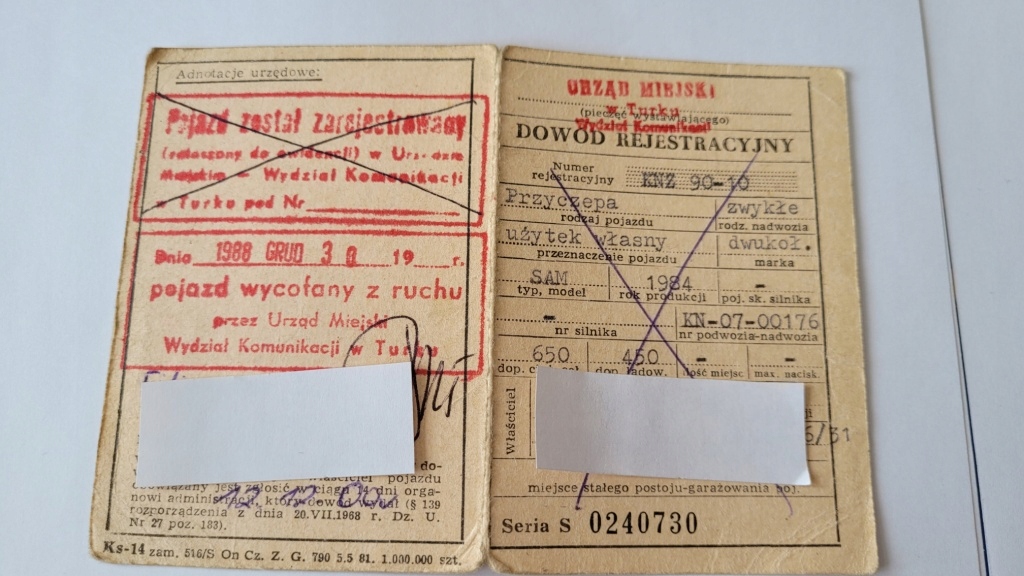 Adnotacje urzędowe:
Pojazd został zarejestrowany
(zgłoszony do ewidencji) w Urzędzie
Miejskim — Wydział Komunikacji
w Turku pod Nr
Dnia 1988 GRUD 30 19 r.
pojazd wycofany z ruchu
przez Urząd Miejski
Wydział Komunikacji w Turku
do-
pojazdu
jest zgłosić w ciągu 14 dni orga-
nowi administracji, który dowód wydał (§ 139
rozporządzenia z dnia 20.VII.1968 r. Dz. U.
Nr 27 poz. 183).
Ks-14 zam. 516/S On Cz. Z. G. 790 5.5 81. 1.000.000 szt.
URZĄD MIEJSKI
w Turku
(pieczęć wystawiającego)
Wydział Komunikacji
DOWÓD REJESTRACYJNY
Numer
rejestracyjny KNZ 90-10
Przyczepa zwykłe
rodzaj pojazdu rodz. nadwozia
użytek własny dwukoł.
przeznaczenie pojazdu marka
SAM 1984 -
typ, model rok produkcji poj. sk. silnika
- KN-07-00176
nr silnika nr podwozia-nadwozia
650 450 - -
dop. dop. ładow. ilość miejsc max. nacisk.
Właściciel
6/31
miejsce stałego postoju-garażowania poj.
Seria S 0240730